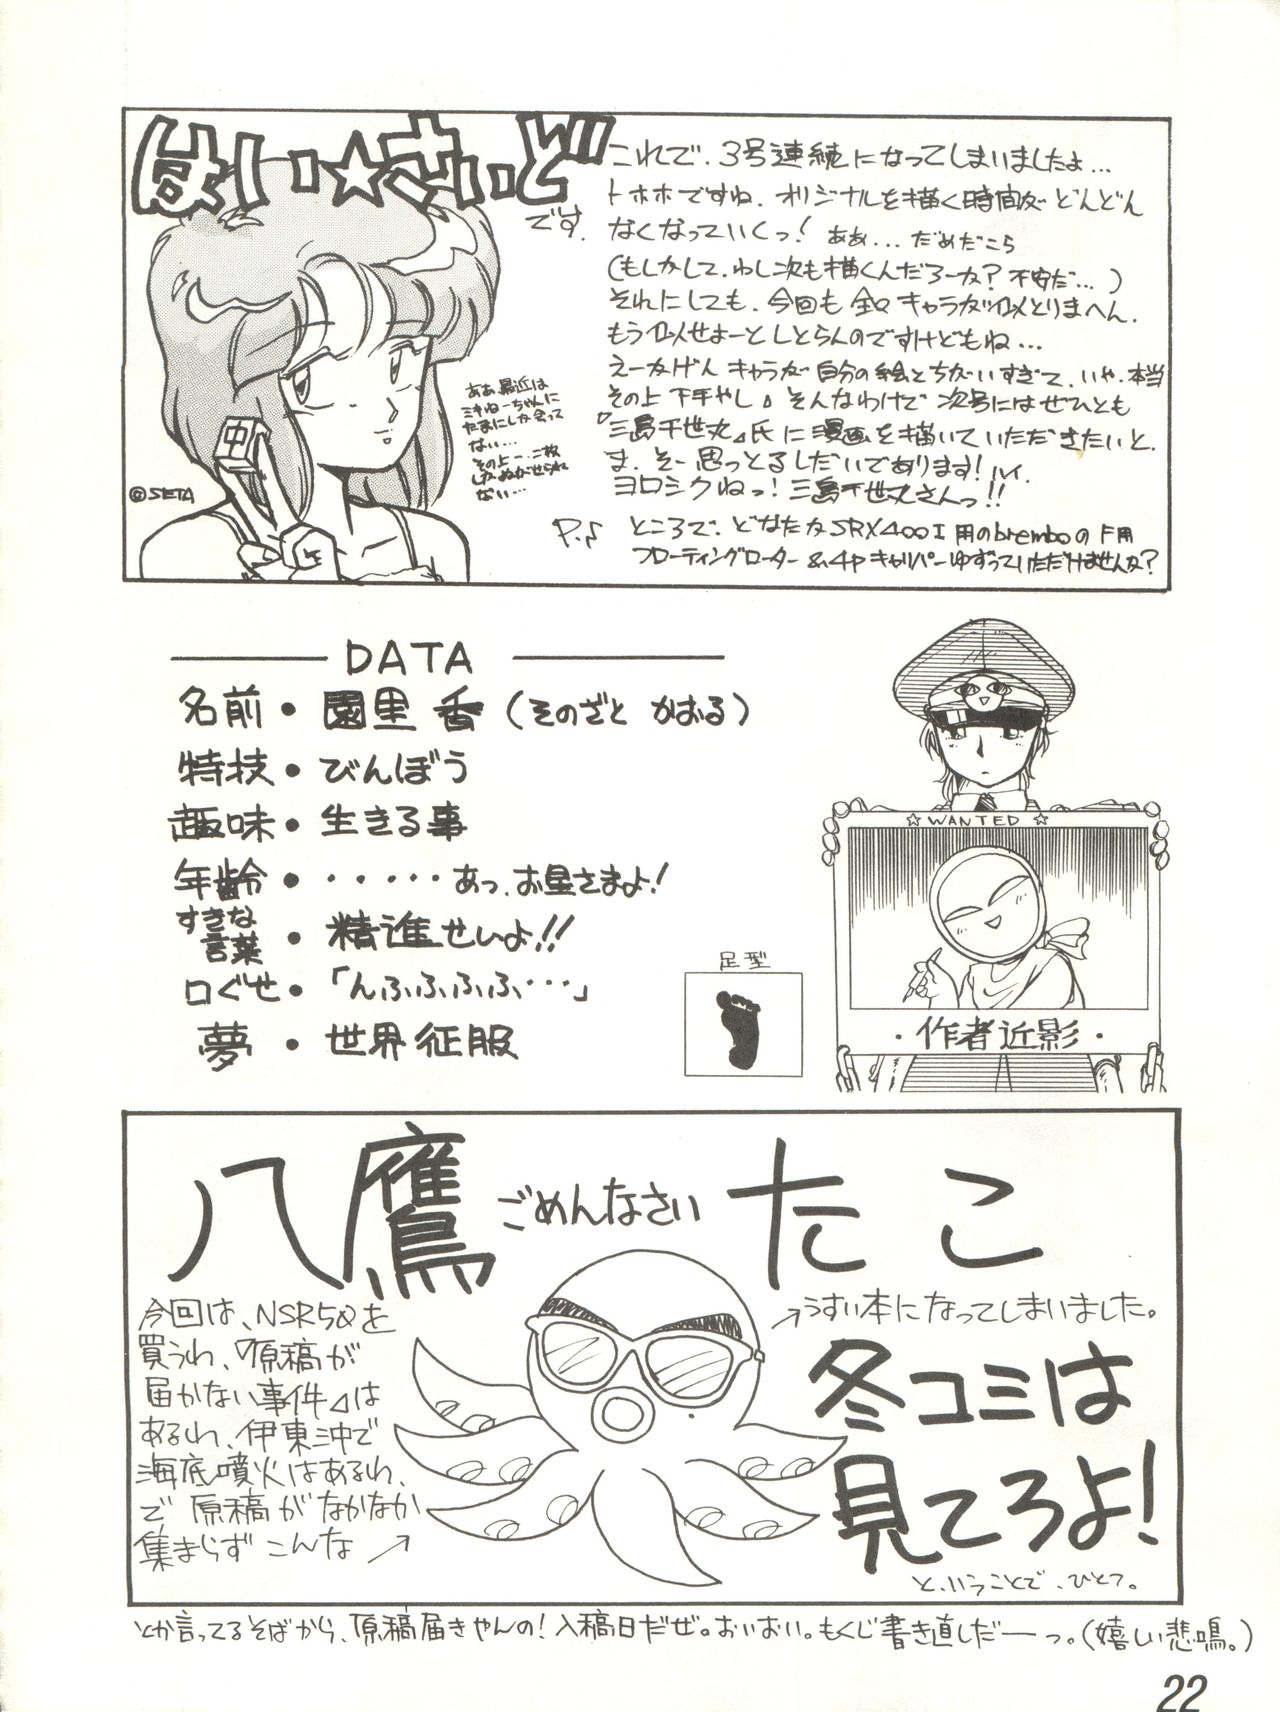 はい☆さいど
です.
これで、3号連続になってしまいましたよ…
トホホですね.オリジナルを描く時間がどんどん
なくなっていくっ！ああ…だめだこら
(もしかして、わし次も描くんだろーか？不安だ…)
それにしても、今回も全々キャラが似とりまへん.
もう似せよーとしとらんのですけどもね…
えーかげんキャラが自分の手絵とちがいすぎて、いや、本当
その上下手やし♪そんなわけで次号にはぜひとも
『三島千世丸』氏に漫画を描いていただきたいと、
ま、そー思っとるしだいであります！ハイ.
ヨロシクねっ！三島千世丸さんっ!!
P.S ところで、どなたかSRX400I用のbremboのF用
フローティングローター&4pキャリパーゆずっていただけませんか？
ああ、最近は
ミキねーちゃんに
たまにしか会って
ない…
その上一、二枚
しかぬがせられ
ない…
中
©SETA
DATA
名前・園里 香(そのざと かおる)
特技・びんぼう
趣味・生きる事
年齢・・・・・・あっ、お星さまよ！
すきな言葉・精進せいよ!!
口ぐせ・「んふふふふふ…」
夢・世界征服
足型
☆WANTED☆
・作者近影・
八鷹 ごめんなさい たこ
今回は、NSR50を
買うわ、『原稿が
届かない事件』は
あるわ、伊東沖で
海底噴火はあるわ、
で原稿がなかなか
集まらずこんな↗
↗うすい本になってしまいました。
冬コミは
見てろよ！
と、いうことで、ひとつ。
とか言ってるそばから、原稿届きやんの！入稿日だぜ。おいおい。もくじ書き直しだーっ。(嬉しい悲鳴。)
22